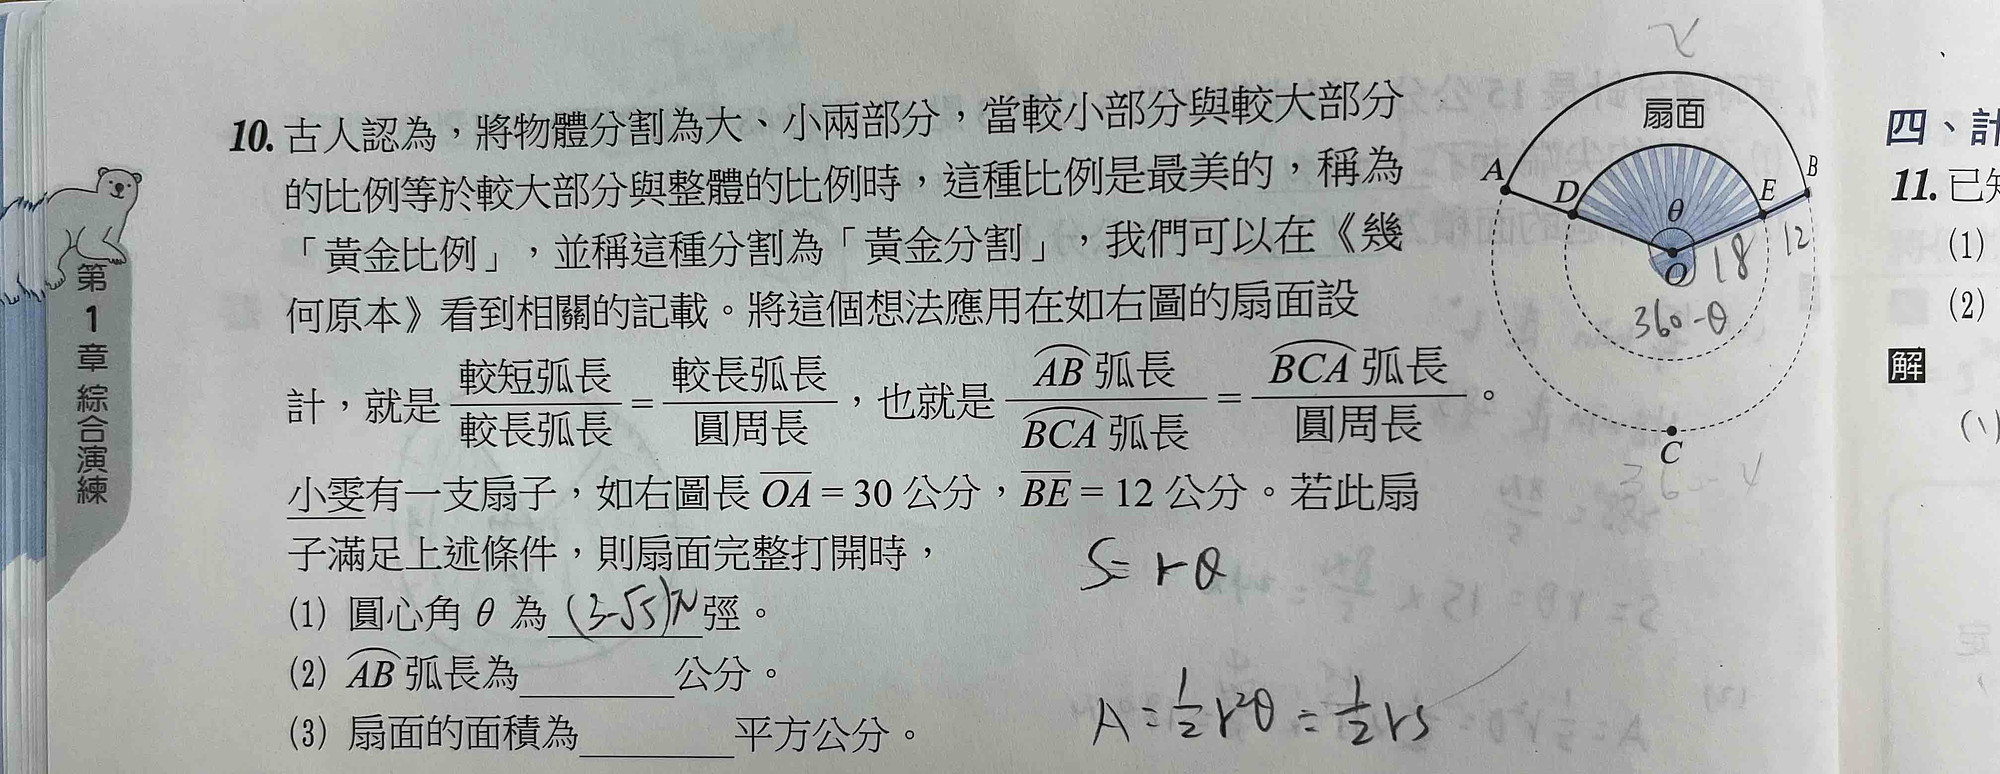 10. 古人認為，將物體分割為大、小兩部分，當較小部分與較大部分
的比例等於較大部分與整體的比例時，這種比例是最美的，稱為
「黃金比例」，並稱這種分割為「黃金分割」，我們可以在《幾
何原本》看到相關的記載。將這個想法應用在如右圖的扇面設
計，就是 較短弧長/較長弧長 = 較長弧長/圓周長，也就是 AB 弧長/BCA 弧長 = BCA 弧長/圓周長。
小雯有一支扇子，如右圖長 OA = 30 公分，BE = 12 公分。若此扇
子滿足上述條件，則扇面完整打開時，
(1) 圓心角 θ 為 (3-√5)π 弳。
(2) AB 弧長為 公分。
(3) 扇面的面積為 平方公分。
S = rθ
A = 1/2 r²θ = 1/2 rs
扇面
A
D
θ
E
B
O
18
12
360-θ
C
第1章 綜合演練
四、計
11. 已知
(1)
(2)
解
(1)